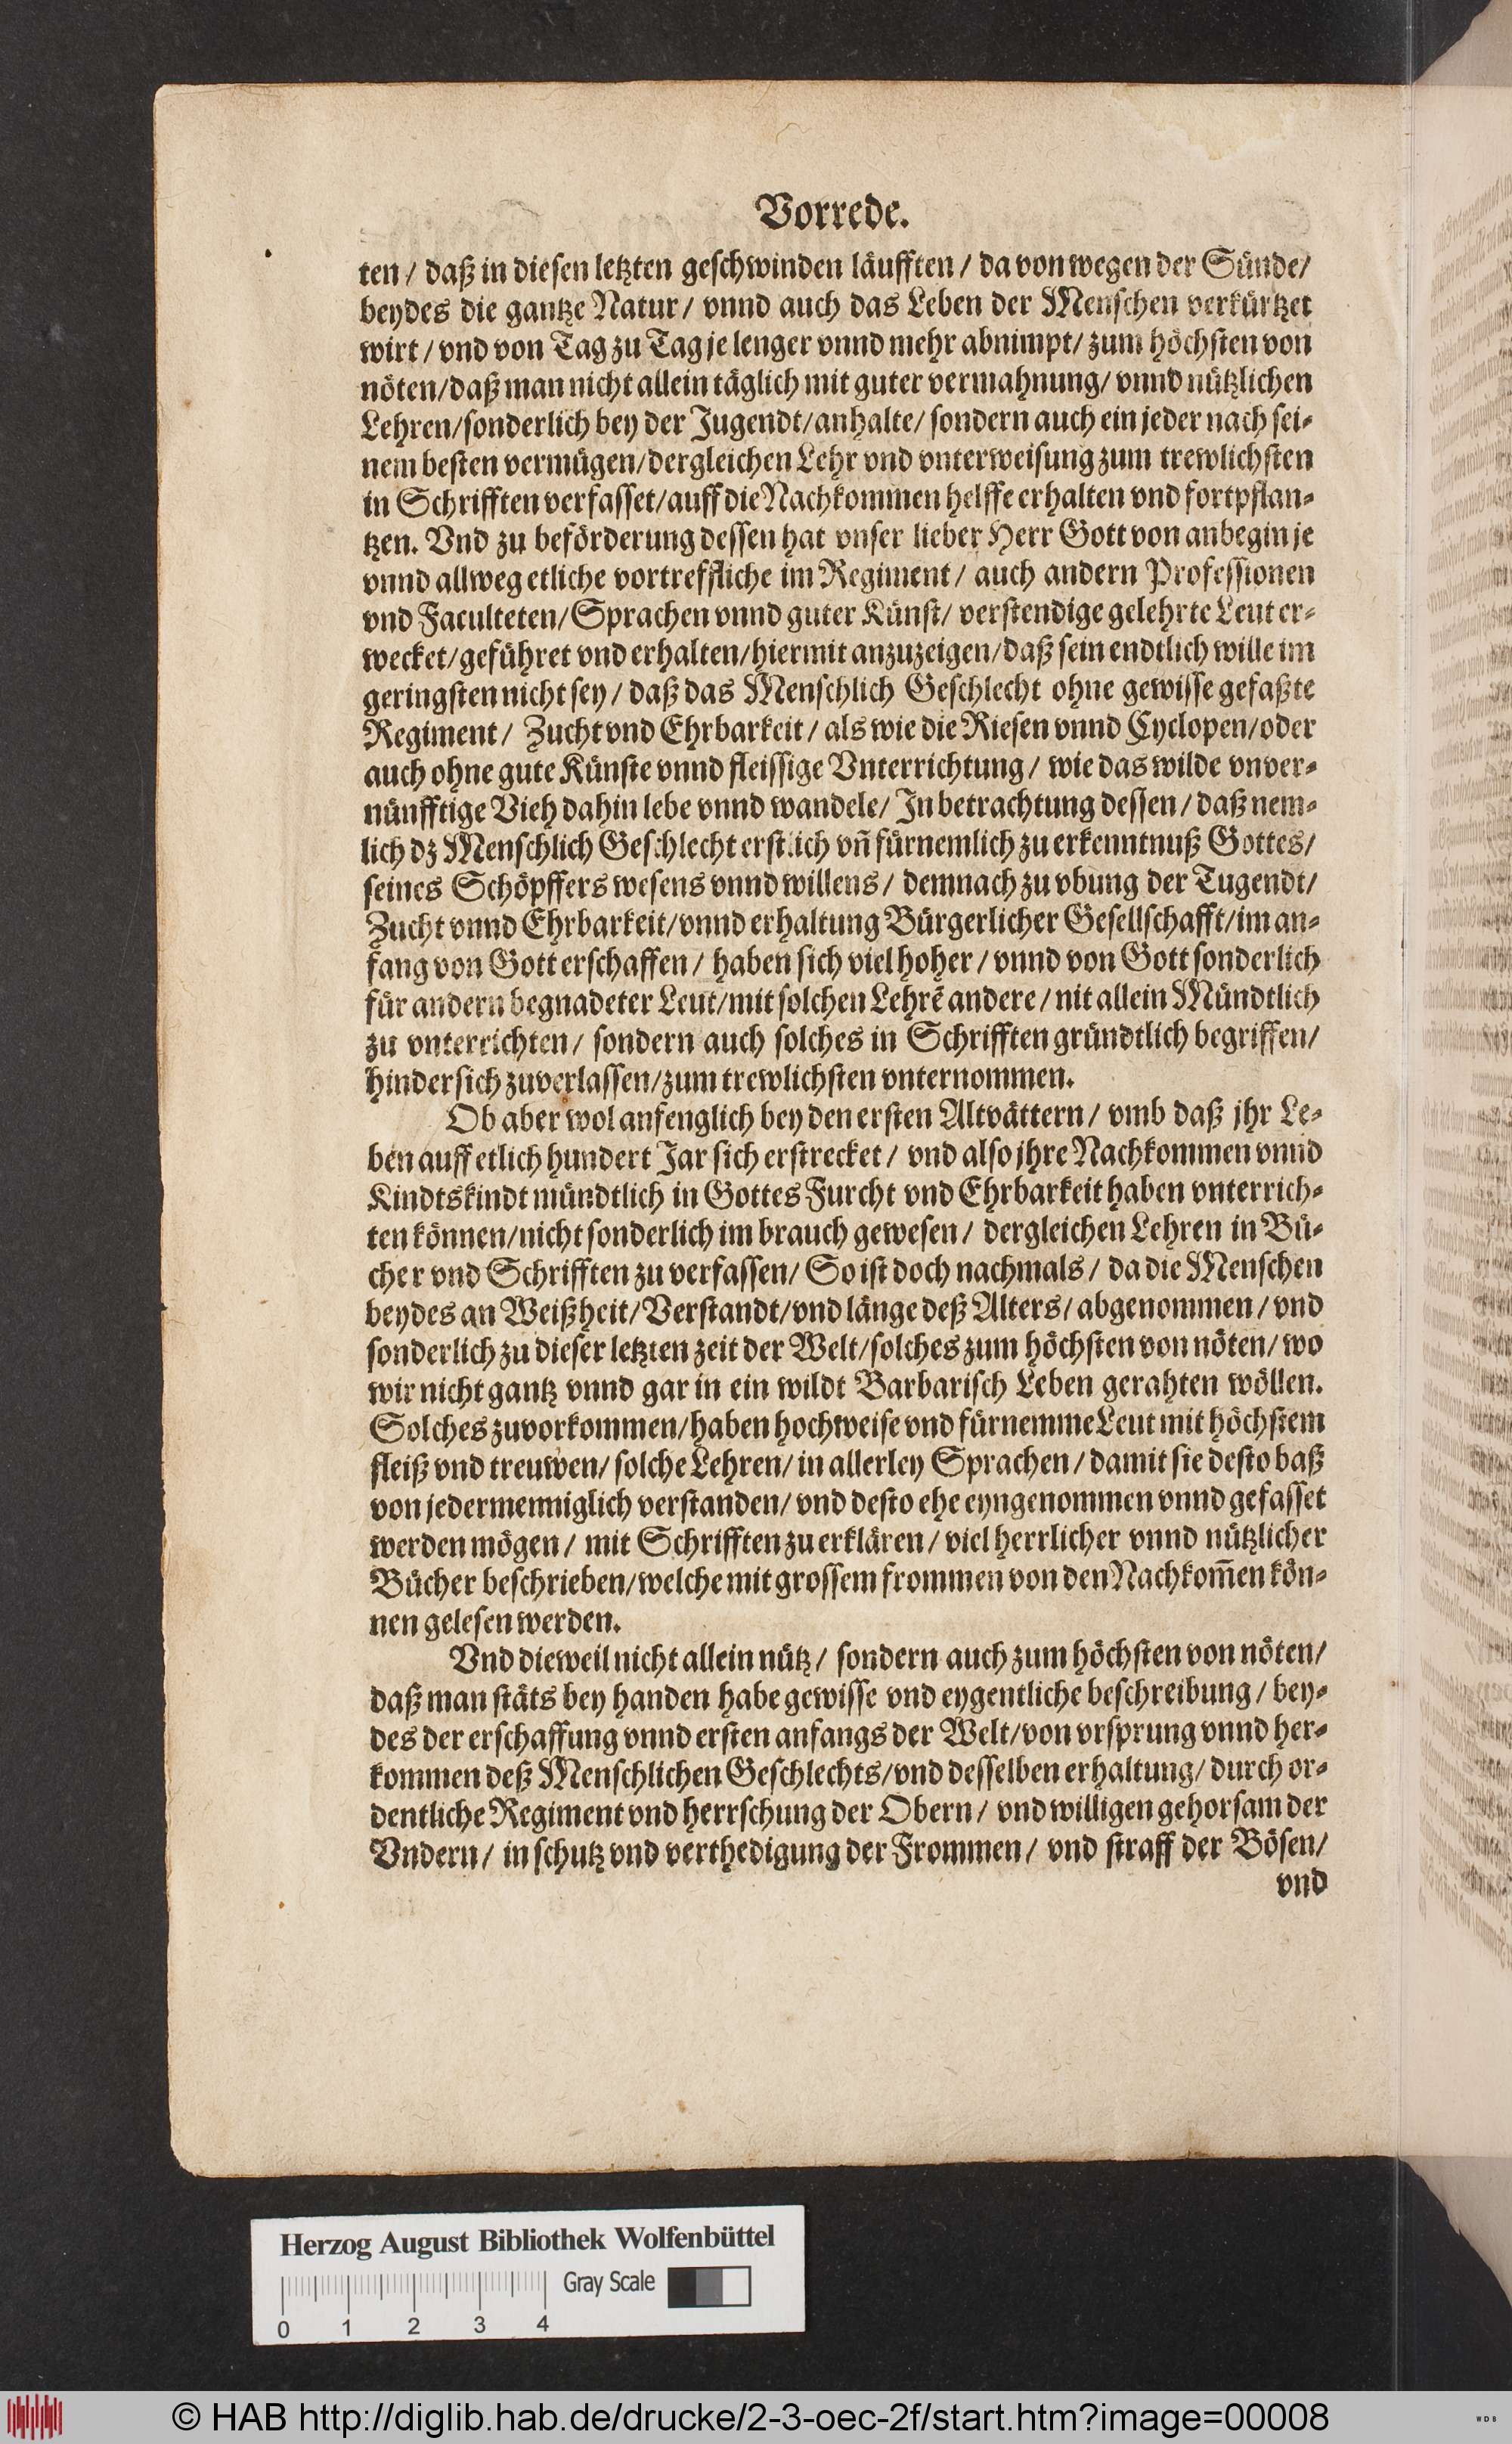 Vorrede.
ten / daß in diesen letzten geschwinden läufften / da von wegen der Sünde/
beydes die gantze Natur / vnnd auch das Leben der Menschen verkürtzet
wirt / vnd von Tag zu Tag je lenger vnnd mehr abnimpt / zum höchsten von
nöten / daß man nicht allein täglich mit guter vermahnung / vnnd nützlichen
Lehren / sonderlich bey der Jugendt / anhalte / sondern auch ein jeder nach sei⸗
nem besten vermügen / dergleichen Lehr vnd vnterweisung zum trewlichsten
in Schrifften verfasset / auff die Nachkommen helffe erhalten vnd fortpflan⸗
tzen. Vnd zu beförderung dessen hat vnser lieber Herr Gott von anbegin je
vnnd allweg etliche vortreffliche im Regiment / auch andern Professionen
vnd Faculteten / Sprachen vnnd guter Künst / verstendige gelehrte Leut er⸗
wecket / geführet vnd erhalten / hiermit anzuzeigen / daß sein endtlich wille im
geringsten nicht sey / daß das Menschlich Geschlecht ohne gewisse gefaßte
Regiment / Zucht vnd Ehrbarkeit / als wie die Riesen vnnd Cyclopen / oder
auch ohne gute Künste vnnd fleissige Vnterrichtung / wie das wilde vnver⸗
nünfftige Vieh dahin lebe vnnd wandele / In betrachtung dessen / daß nem⸗
lich dz Menschlich Geschlecht erstlich vñ fürnemlich zu erkenntnuß Gottes /
seines Schöpffers wesens vnnd willens / demnach zu vbung der Tugendt /
Zucht vnnd Ehrbarkeit / vnnd erhaltung Bürgerlicher Gesellschafft / im an⸗
fang von Gott erschaffen / haben sich viel hoher / vnnd von Gott sonderlich
für andern begnadeter Leut / mit solchen Lehrẽ andere / nit allein Mündtlich
zu vnterrichten / sondern auch solches in Schrifften gründtlich begriffen /
hinder sich zuverlassen / zum trewlichsten vnternommen.
Ob aber wol anfenglich bey den ersten Altvättern / vmb daß jhr Le⸗
ben auff etlich hundert Jar sich erstrecket / vnd also jhre Nachkommen vnnd
Kindtskindt mündtlich in Gottes Furcht vnd Ehrbarkeit haben vnterrich⸗
ten können / nicht sonderlich im brauch gewesen / dergleichen Lehren in Bü⸗
cher vnd Schrifften zu verfassen / So ist doch nachmals / da die Menschen
beydes an Weißheit / Verstandt / vnd länge deß Alters / abgenommen / vnd
sonderlich zu dieser letzten zeit der Welt / solches zum höchsten von nöten / wo
wir nicht gantz vnnd gar in ein wildt Barbarisch Leben gerahten wöllen.
Solches zuvorkommen / haben hochweise vnd fürnemme Leut mit höchstem
fleiß vnd treuwen / solche Lehren / in allerley Sprachen / damit sie desto baß
von jedermenniglich verstanden / vnd desto ehe eyngenommen vnnd gefasset
werden mögen / mit Schrifften zu erklären / viel herrlicher vnnd nützlicher
Bücher beschrieben / welche mit grossem frommen von den Nachkom̃en kön⸗
nen gelesen werden.
Vnd dieweil nicht allein nütz / sondern auch zum höchsten von nöten /
daß man stäts bey handen habe gewisse vnd eygentliche beschreibung / bey⸗
des der erschaffung vnnd ersten anfangs der Welt / von vrsprung vnnd her⸗
kommen deß Menschlichen Geschlechts / vnd desselben erhaltung / durch or⸗
dentliche Regiment vnd herrschung der Obern / vnd willigen gehorsam der
Vndern / in schutz vnd verthedigung der Frommen / vnd straff der Bösen /
vnd
Herzog August Bibliothek Wolfenbüttel
Gray Scale
0 1 2 3 4
© HAB http://diglib.hab.de/drucke/2-3-oec-2f/start.htm?image=00008
WDB